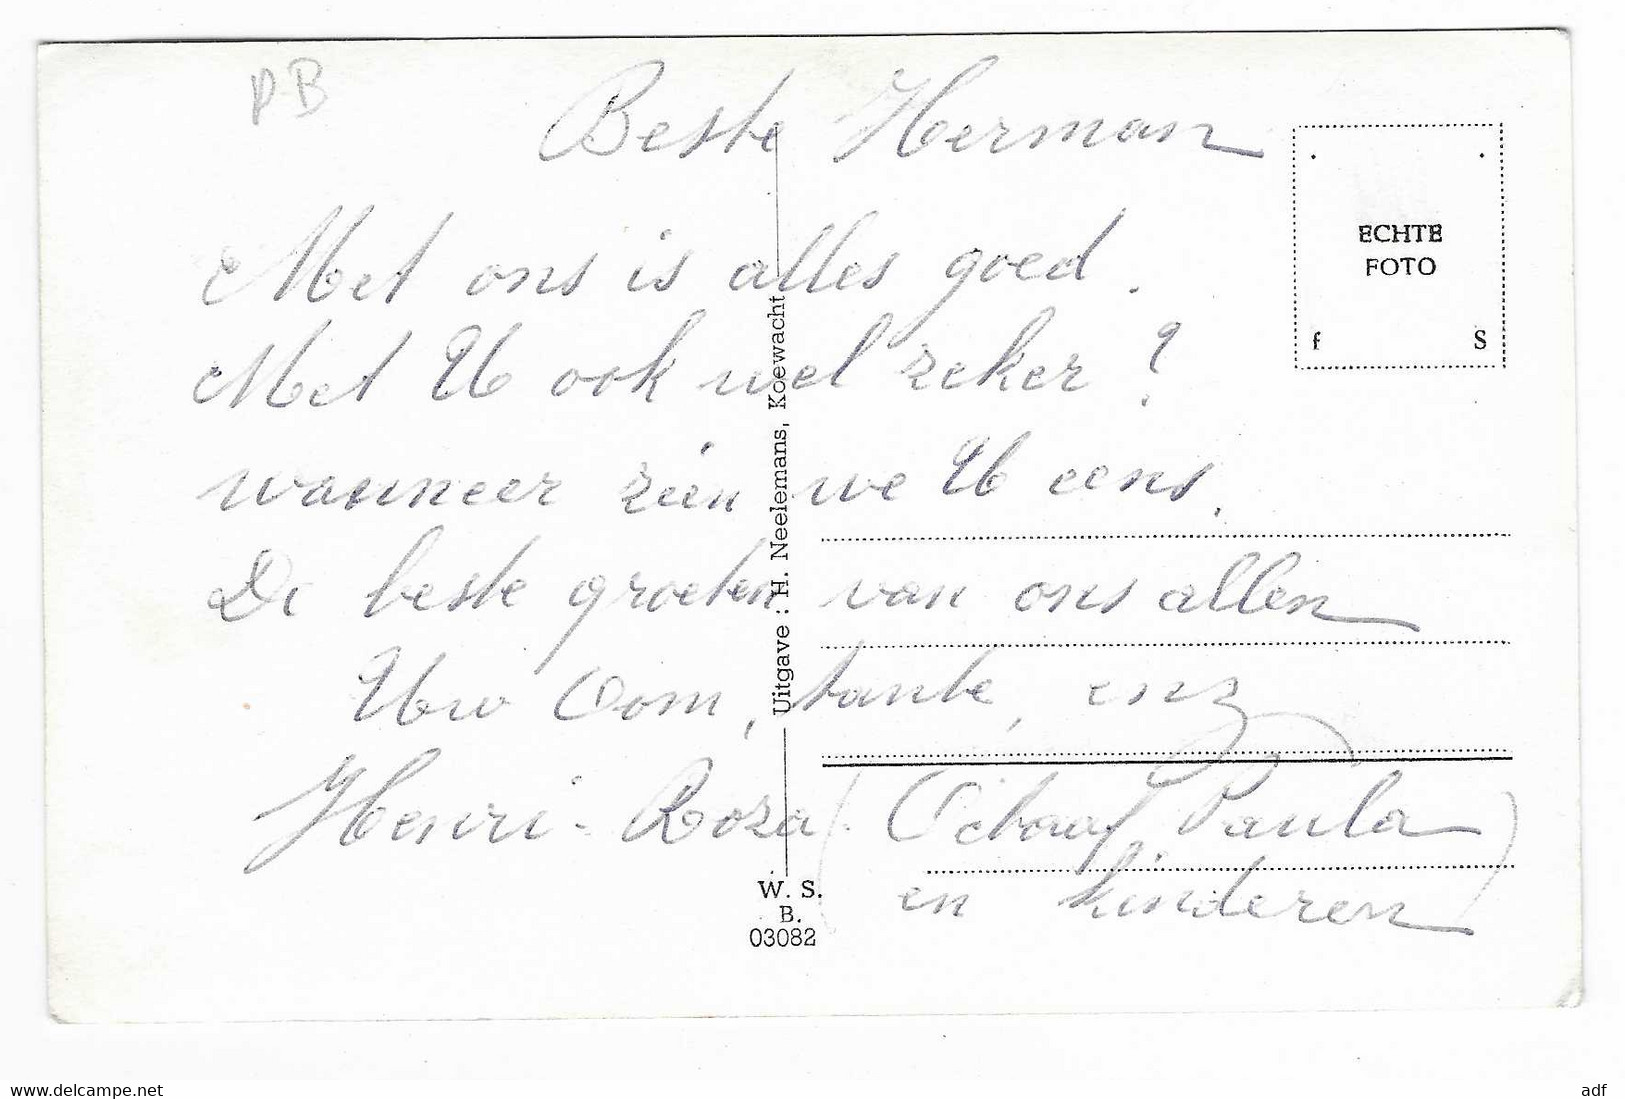 PB
Beste Herman
Met ons is alles goed.
Met U ook wel zeker?
wanneer zien we U eens.
De beste groeten van ons allen
Uw Oom, tante, enz
Henri - Roza (Paula
en kinderen)
ECHTE
FOTO
f S
Uitgave : H. Neelemans, Koewacht
W. S.
B.
03082
www.delcampe.net
adf